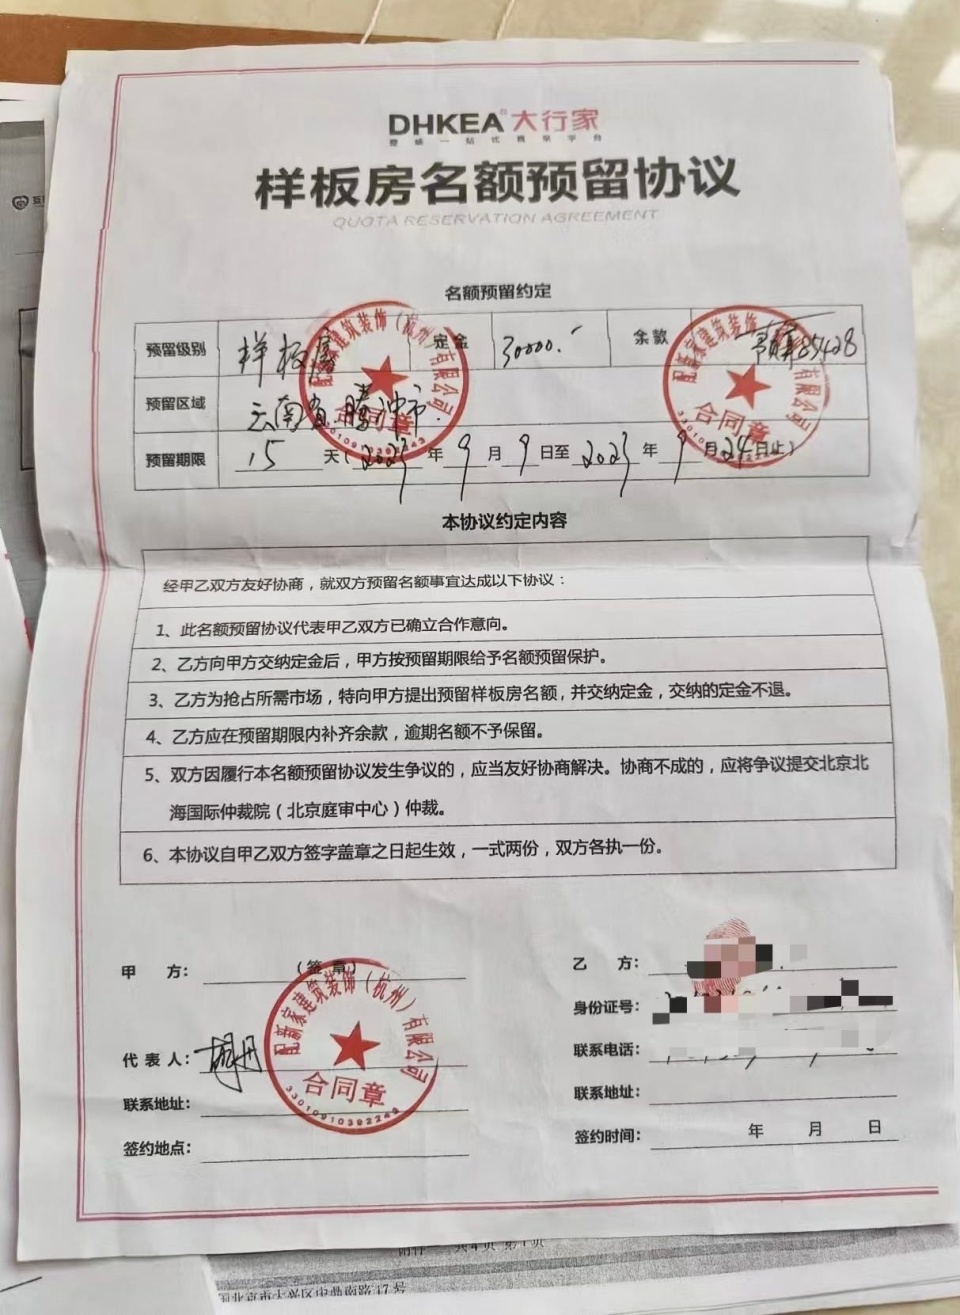 DHKEA®大行家
整 装 一 站 式 服 务 平 台
样板房名额预留协议
QUOTA RESERVATION AGREEMENT
名额预留约定
预留级别 样板房 定金 30000. 余款 85428
预留区域 云南省腾冲市.
预留期限 15 天(2023年9月9日至2023年9月24日止)
配新家建筑装饰(杭州)有限公司
合同章
配新家建筑装饰(杭州)有限公司
合同章
本协议约定内容
经甲乙双方友好协商,就双方预留名额事宜达成以下协议:
1、此名额预留协议代表甲乙双方已确立合作意向。
2、乙方向甲方交纳定金后,甲方按预留期限给予名额预留保护。
3、乙方为抢占所需市场,特向甲方提出预留样板房名额,并交纳定金,交纳的定金不退。
4、乙方应在预留期限内补齐余款,逾期名额不予保留。
5、双方因履行本名额预留协议发生争议的,应当友好协商解决。协商不成的,应将争议提交北京北
海国际仲裁院(北京庭审中心)仲裁。
6、本协议自甲乙双方签字盖章之日起生效,一式两份,双方各执一份。
甲 方: (签 章)
代 表 人:
联系地址:
签约地点:
配新家建筑装饰(杭州)有限公司
合同章
33010910392243
乙 方:
身份证号:
联系电话:
联系地址:
签约时间: 年 月 日
共4页 第1页